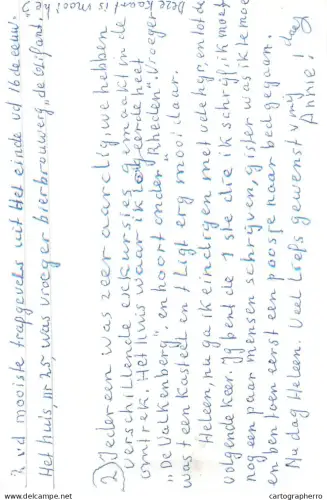 2 vd mooiste trapgevels uit Het einde vd 16de eeuw.
Het huis, nr 25, was vroeger bierbrouwerij „de Olifant”.
Deze kaart is mooi hè?
2) Iedereen was zeer aardig, we hebben
verschillende exkursies gemaakt in de
omtrek. Het Huis waar ik logeerde heet
"De Valkenberg" en hoort onder "Rheden". Vroeger
was t een kasteel en t ligt erg mooi daar.
Heleen, nu ga ik eindigen met vele hgr. en tot de
volgende keer. Jy bent de 1ste die ik schryf, ik moet
nog een paar mensen schryven, gister was ik te moe
en ben toen eerst een poosje naar bed gegaan.
Nu dag Heleen. Veel liefs gewenst v mij
dag
Annie!
www.delcampe.net
cartographerro